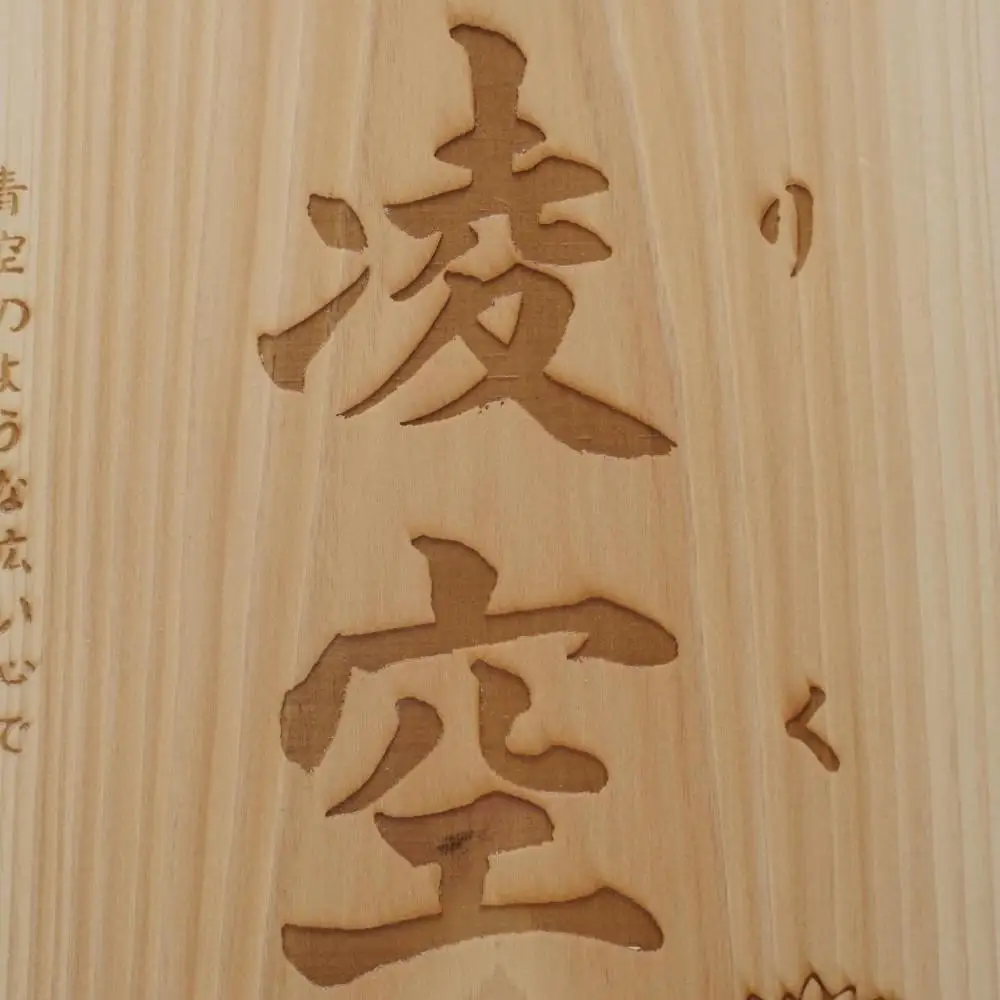 りく
凌空
青空のような広い心で